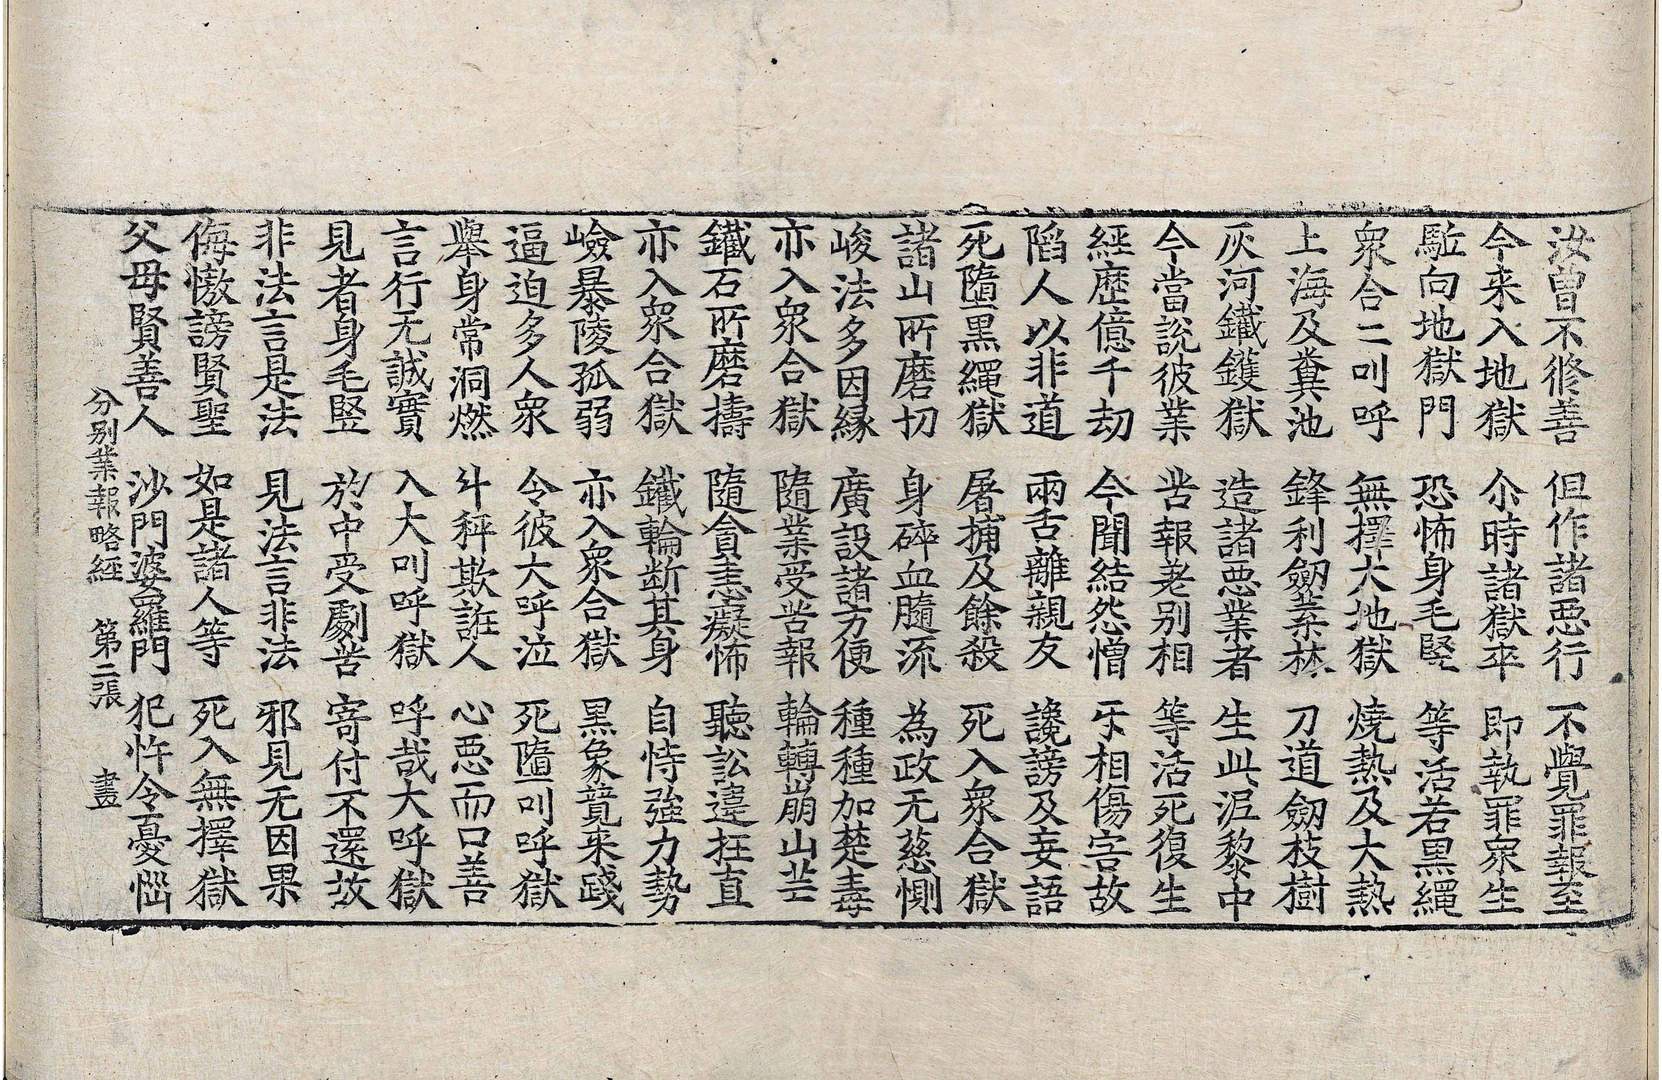 汝曽不修善　但作諸惡行　不覺罪報至
今来入地獄　尒時諸獄卒　即執罪衆生
駈向地獄門　恐怖身毛竪　等活若黒繩
衆合二叫呼　無擇大地獄　燒熱及大熱
上海及糞池　鋒利劒葉林　刀道劒枝樹
灰河鐵鑊獄　造諸惡業者　生此泥黎中
今當說彼業　苦報差别相　等活死復生
經歷億千劫　今聞結怨憎　㸦相傷害故
陷人以非道　兩舌離親友　讒謗及妄語
死墮黒繩獄　屠捕及餘殺　死入衆合獄
諸山所磨切　身碎血髓流　為政无慈惻
峻法多因縁　廣設諸方便　種種加楚毒
亦入衆合獄　隨業受苦報　輪轉崩山芒
鐵石所磨擣　隨貪恚癡怖　聽訟違枉直
亦入衆合獄　鐵輪断其身　自恃強力勢
嶮暴陵孤弱　亦入衆合獄　黒象競来踐
逼迫多人衆　令彼大呼泣　死墮叫呼獄
舉身常洞燃　斗秤欺誑人　心惡而口善
言行无誠實　入大叫呼獄　呼哉大呼獄
見者身毛竪　於中受劇苦　寄付不還故
非法言是法　見法言非法　邪見无因果
侮慠謗賢聖　如是諸人等　死入無擇獄
父母賢善人　沙門婆羅門　犯忤令憂惱
分别業報略經　第二張　畫